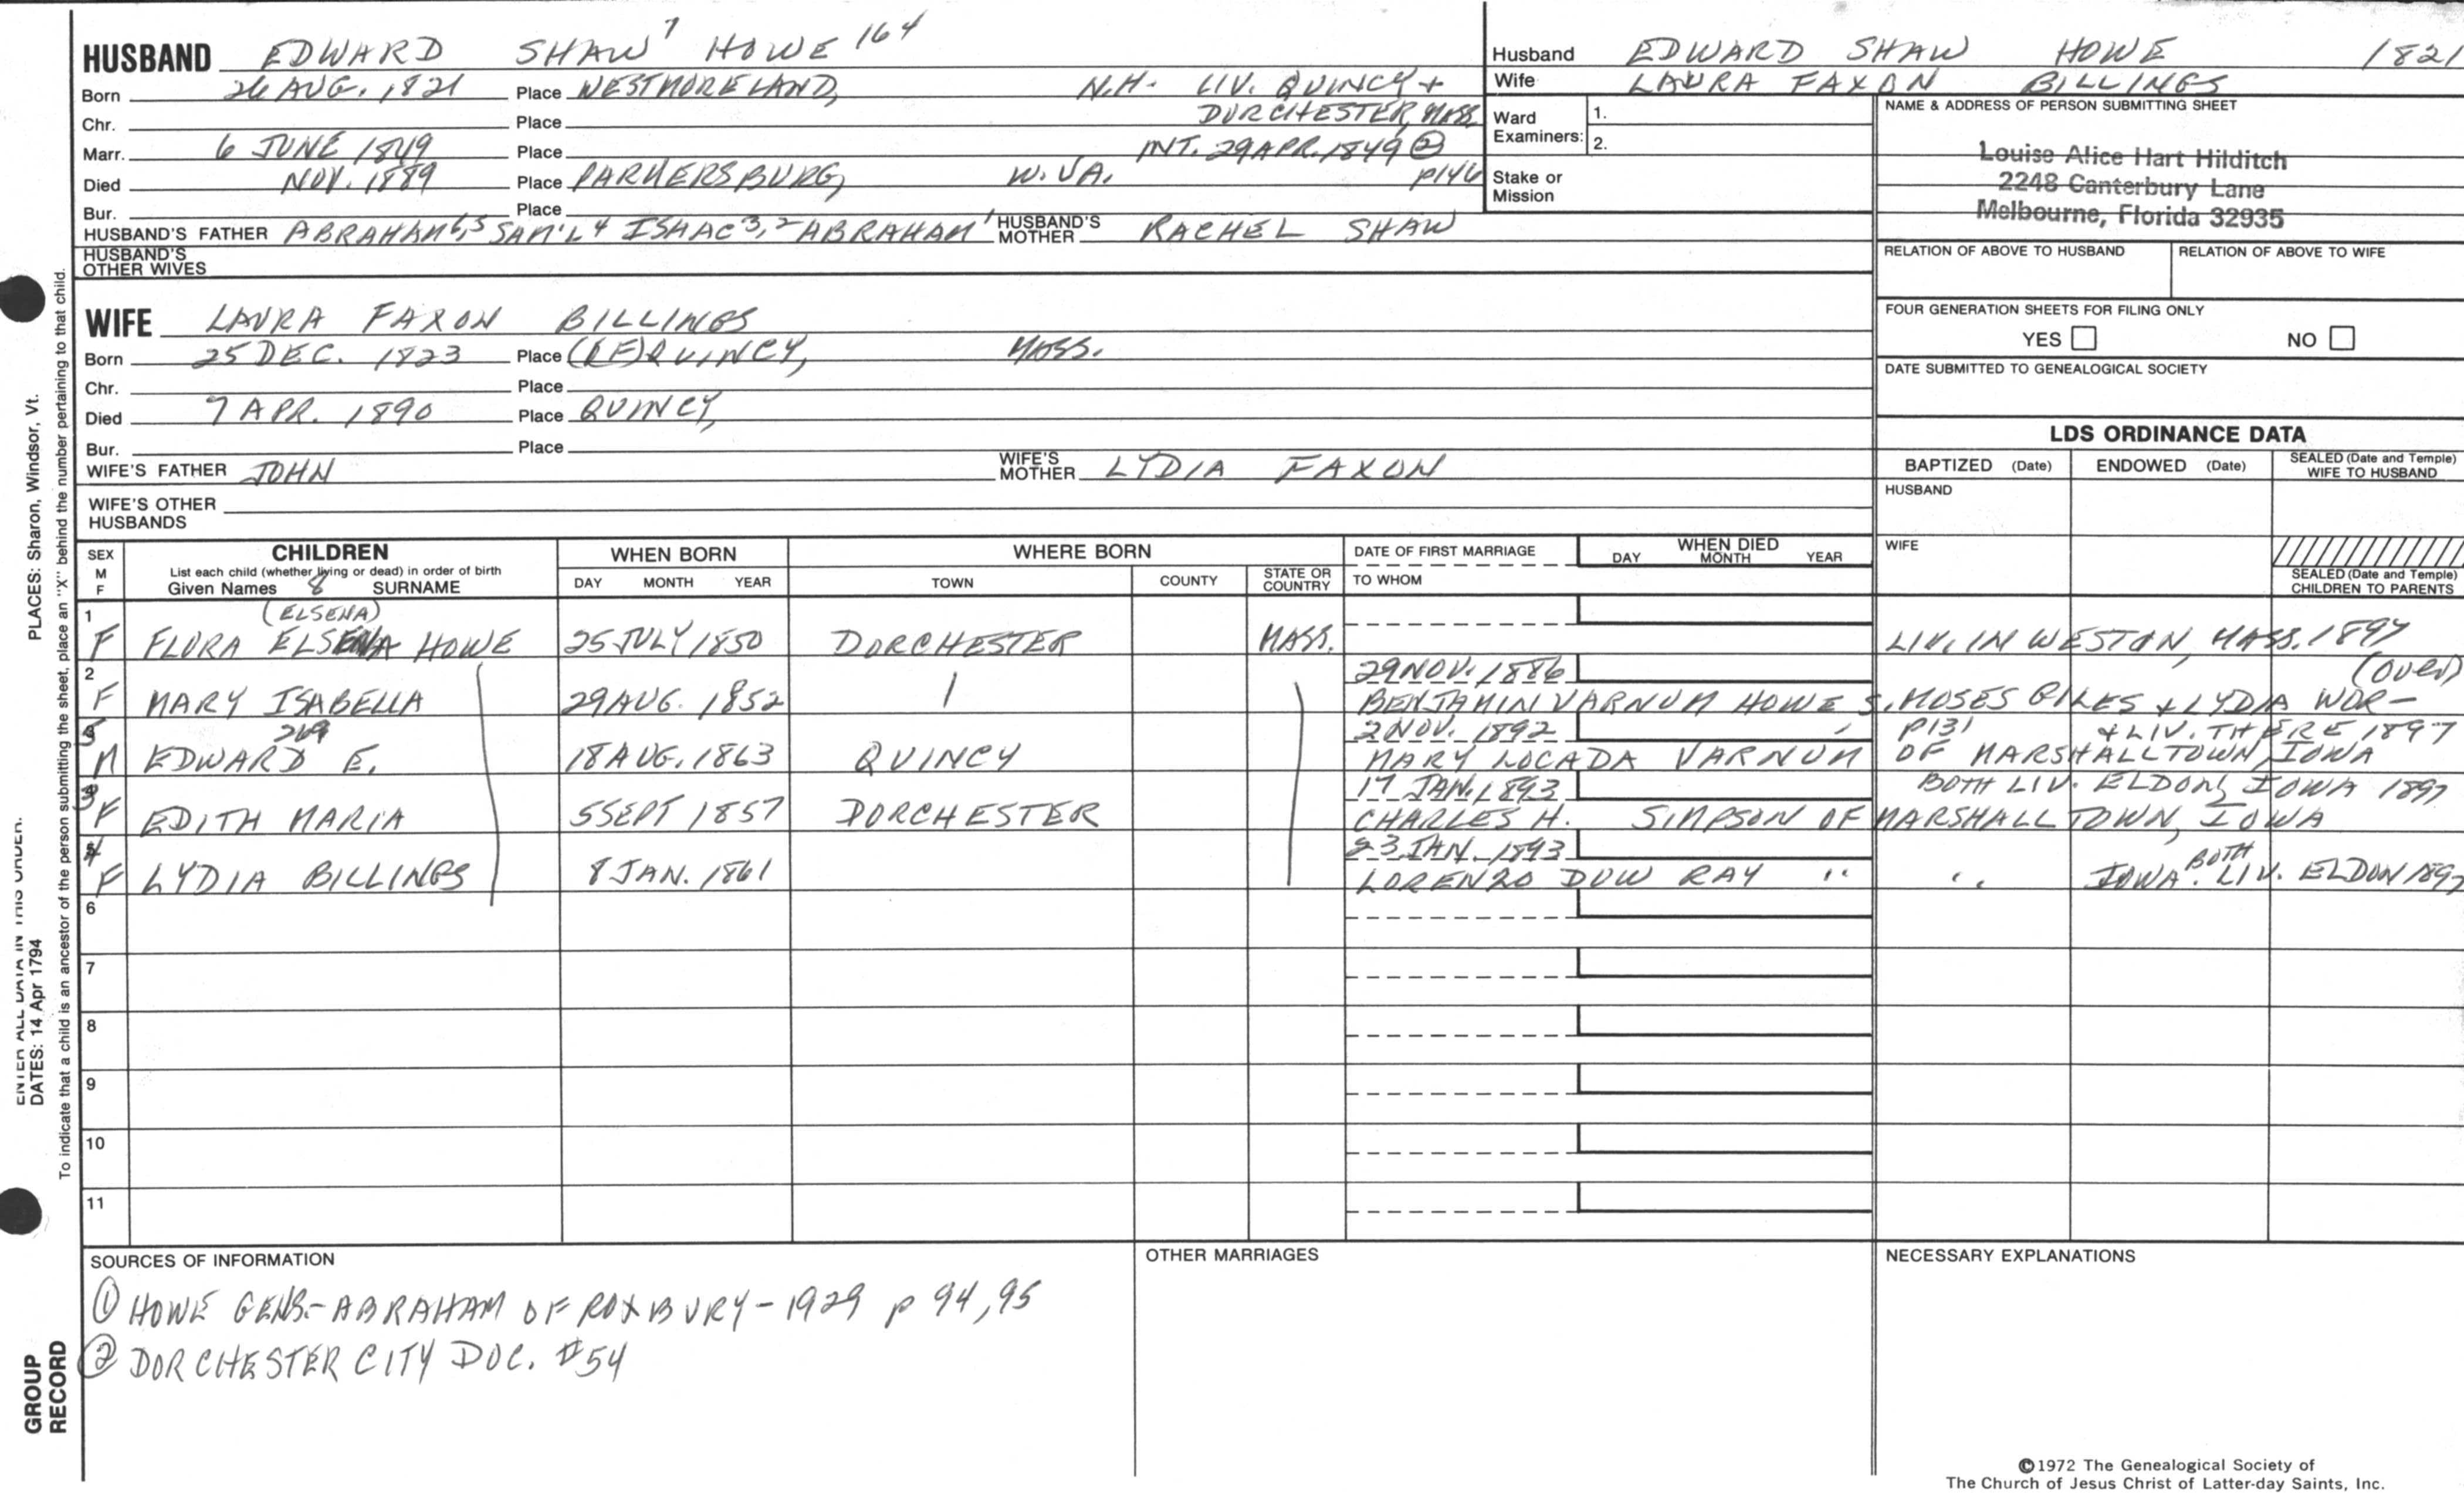 HUSBAND EDWARD SHAW 7 HOWE 164
Born 26 AUG. 1821 Place WESTMORELAND, N.H. LIV. QUINCY +
Chr. Place DORCHESTER, MASS.
Marr. 6 JUNE 1849 Place INT. 29 APR. 1849 ②
Died NOV. 1889 Place PARKERSBURG, W. VA. P146
Bur. Place
HUSBAND'S FATHER ABRAHAM 6,5 SAM'L 4 ISAAC 3,2 ABRAHAM 1 HUSBAND'S MOTHER RACHEL SHAW
HUSBAND'S OTHER WIVES
Husband EDWARD SHAW HOWE 1821
Wife LAURA FAXON BILLINGS
Ward Examiners: 1.
2.
Stake or Mission
NAME & ADDRESS OF PERSON SUBMITTING SHEET
Louise Alice Hart Hilditch
2248 Canterbury Lane
Melbourne, Florida 32935
RELATION OF ABOVE TO HUSBAND RELATION OF ABOVE TO WIFE
FOUR GENERATION SHEETS FOR FILING ONLY
YES NO
DATE SUBMITTED TO GENEALOGICAL SOCIETY
WIFE LAURA FAXON BILLINGS
Born 25 DEC. 1823 Place QUINCY, MASS.
Chr. Place
Died 7 APR. 1890 Place QUINCY,
Bur. Place
WIFE'S FATHER JOHN WIFE'S MOTHER LYDIA FAXON
WIFE'S OTHER HUSBANDS
LDS ORDINANCE DATA
BAPTIZED (Date) ENDOWED (Date) SEALED (Date and Temple) WIFE TO HUSBAND
HUSBAND
WIFE
SEALED (Date and Temple) CHILDREN TO PARENTS
SEX M F CHILDREN WHEN BORN WHERE BORN DATE OF FIRST MARRIAGE WHEN DIED
List each child (whether living or dead) in order of birth DAY MONTH YEAR TOWN COUNTY STATE OR COUNTRY TO WHOM DAY MONTH YEAR
Given Names 8 SURNAME
1 (ELSENA)
F FLORA ELSENA HOWE 25 JULY 1850 DORCHESTER MASS. LIV. IN WESTON, MASS. 1897
2 29 NOV. 1886 (OVER)
F MARY ISABELLA 29 AUG. 1852 BENJAMIN VARNUM HOWE S. MOSES GILES + LYDIA WOR-
5 269 2 NOV. 1892 P131 + LIV. THERE 1897
M EDWARD E. 18 AUG. 1863 QUINCY MARY LOCADA VARNUM OF MARSHALLTOWN, IOWA
3 17 JAN. 1893 BOTH LIV. ELDON, IOWA 1897
F EDITH MARIA 5 SEPT 1857 DORCHESTER CHARLES H. SIMPSON OF MARSHALLTOWN, IOWA
4 23 JAN. 1893 BOTH
F LYDIA BILLINGS 8 JAN. 1861 LORENZO DOW RAY " " IOWA. LIV. ELDON 1897
6
7
8
9
10
11
SOURCES OF INFORMATION
① HOWE GENS.-ABRAHAM OF ROXBURY-1929 p 94,95
② DORCHESTER CITY DOC. #54
OTHER MARRIAGES
NECESSARY EXPLANATIONS
©1972 The Genealogical Society of
The Church of Jesus Christ of Latter-day Saints, Inc.
PLACES: Sharon, Windsor, Vt.
ENTER ALL DATA IN THIS ORDER:
DATES: 14 Apr 1794
To indicate that a child is an ancestor of the person submitting the sheet, place an "X" behind the number pertaining to that child.
GROUP RECORD